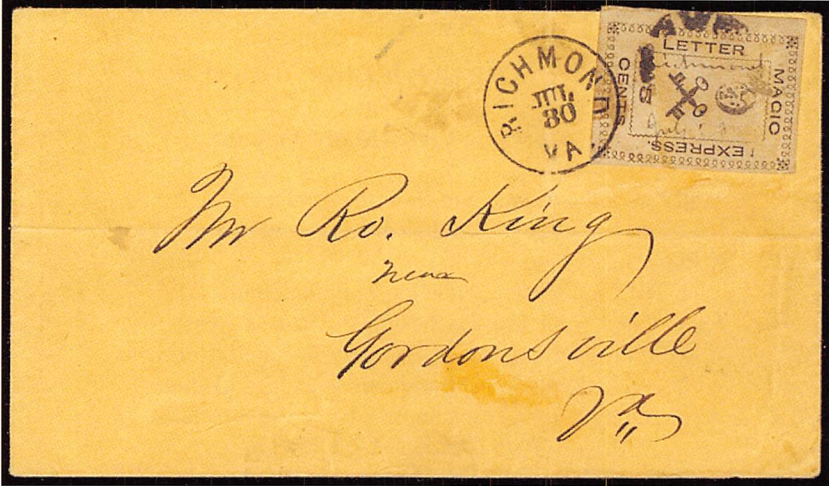 RICHMOND
JUL
30
VA.
LETTER
MAGIC
EXPRESS.
CENTS
5
Richmond
Mr Ro. King
near
Gordonsville
Va